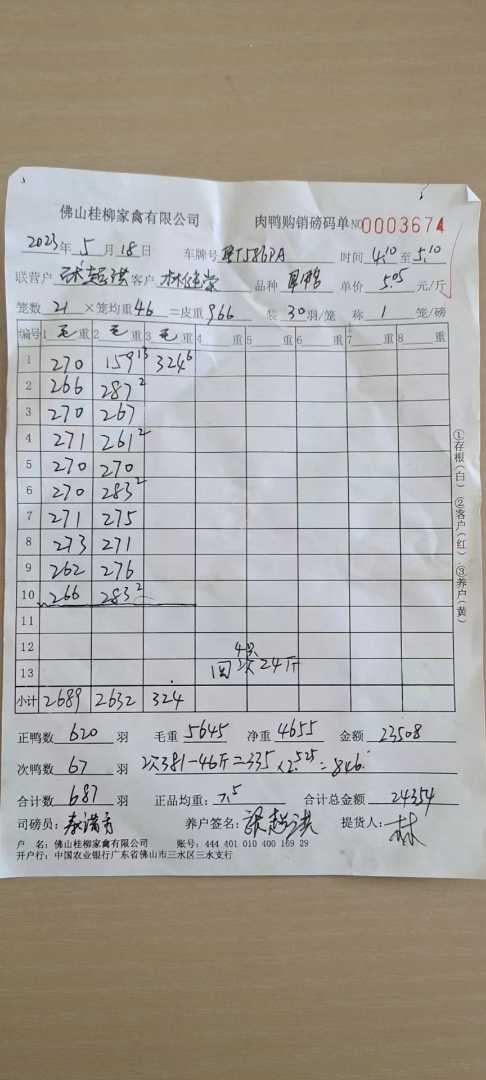 佛山桂柳家禽有限公司 肉鸭购销磅码单 NO 0003674
2023年 5 月 18 日 车牌号 粤T586PA 时间 4:10 至 5:10
联营户 客户 品种 单价 5.05 元/斤
笼数 21 ×笼均重 46 =皮重 966 装 30 羽/笼 称 1 笼/磅
编号 1 毛 重 2 毛 重 3 毛 重 4 重 5 重 6 重 7 重 8 重
1 270 159 13 324 6
2 266 287 2
3 270 267
4 271 261 2
5 270 270
6 270 283 2
7 271 275
8 273 271
9 262 276
10 266 283 2
11
12
13 回 次 24斤
小计 2689 2632 324
正鸭数 620 羽 毛重 5645 净重 4655 金额 23508
次鸭数 67 羽 次381-46斤=335 × 2.525 = 846
合计数 687 羽 正品均重: 7.5 合计总金额 24354
司磅员: 养户签名: 提货人: 林
户 名: 佛山桂柳家禽有限公司 账号: 444 401 010 400 169 29
开户行: 中国农业银行广东省佛山市三水区三水支行
①存根(白) ②客户(红) ③养户(黄)